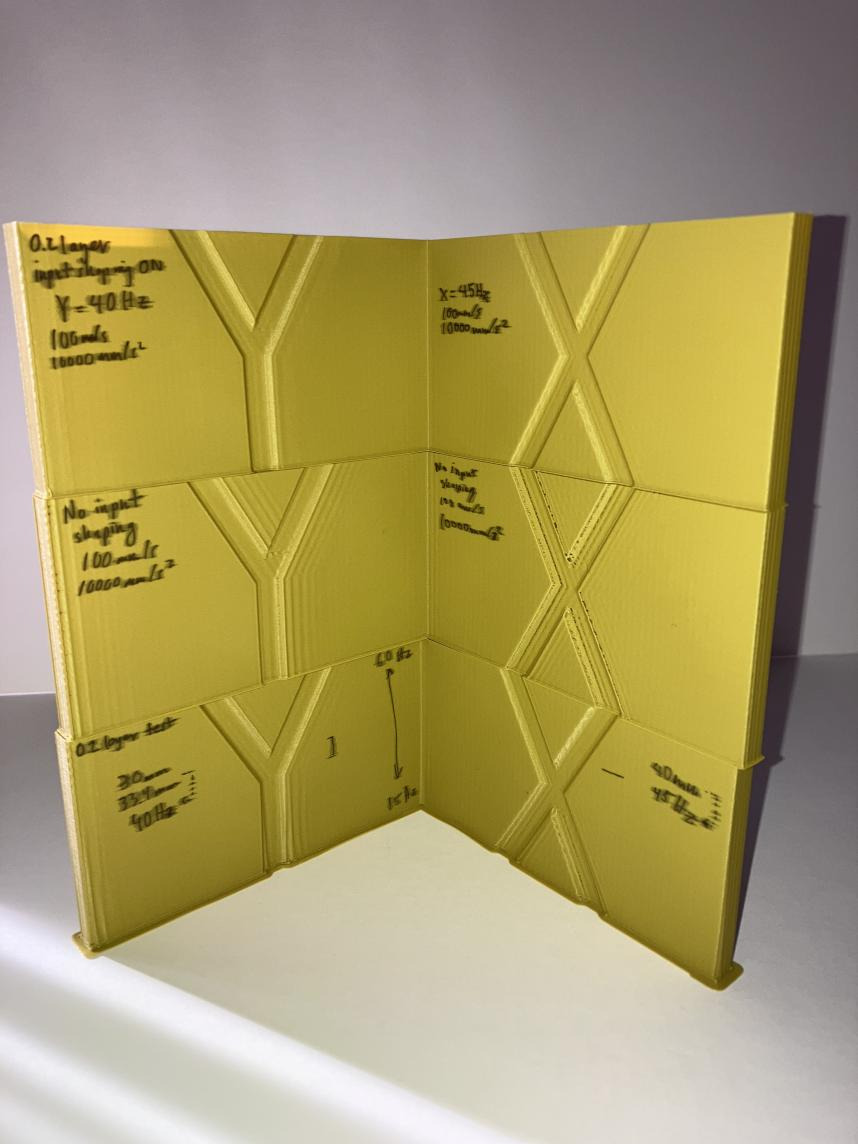 0.2 layer
input shaping ON
Y=40Hz
100mm/s
10000mm/s²
X=45Hz
100mm/s
10000mm/s²
No input
shaping
100mm/s
10000mm/s²
No input
shaping
100mm/s
10000mm/s²
0.2 layer test
30mm
40Hz
60 Hz
15Hz
40mm
45Hz